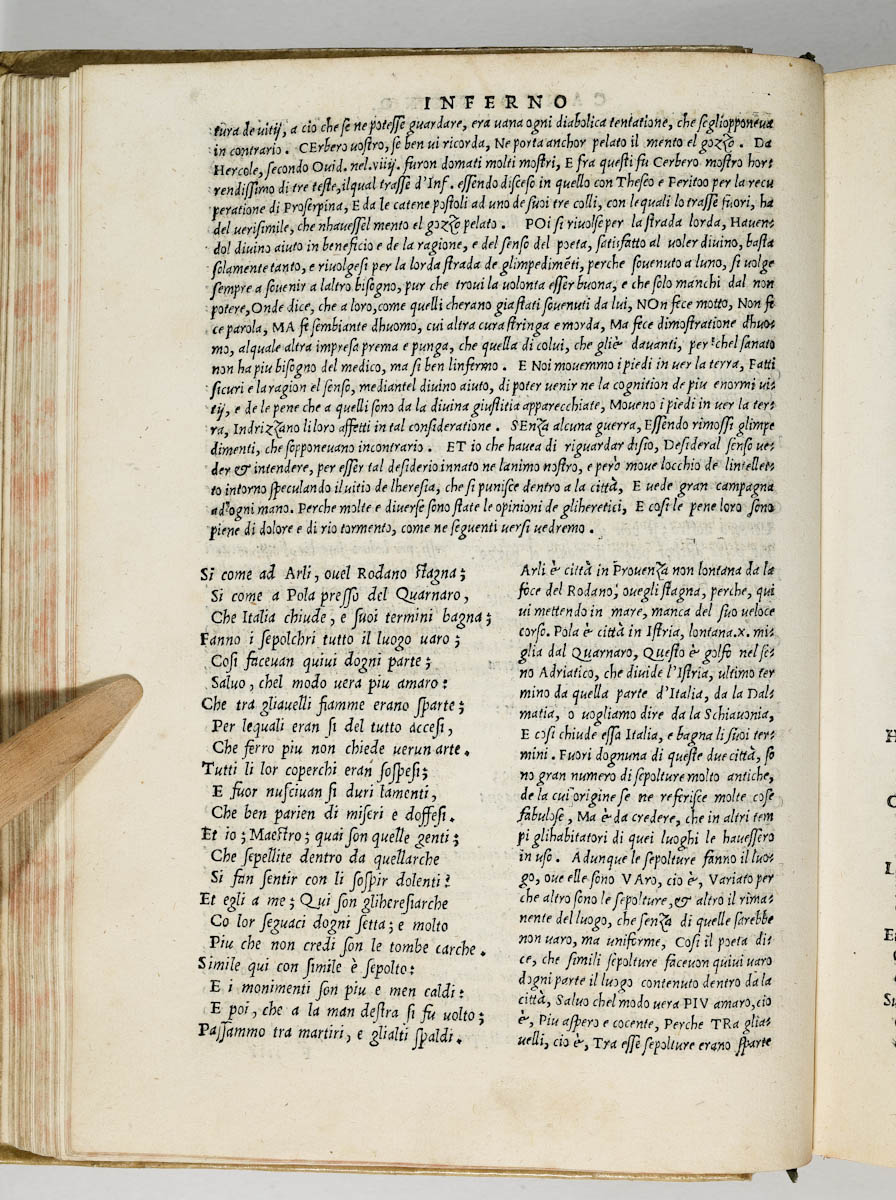 INFERNO
tura de uitij, a cio che se ne potesse guardare, era uana ogni diabolica tentatione, che segliopponeua
in contrario. CErbero uostro, se ben ui ricorda, Ne porta anchor pelato il mento el gozzo. Da
Hercole, secondo Ouid. nel.viiij. furon domati molti mostri, E fra questi fu Cerbero mostro hor-
rendissimo di tre teste, ilqual trasse d'Inf. essendo disceso in quello con Theseo e Peritoo per la recu
peratione di Proserpina, E da le catene postoli ad uno de suoi tre colli, con lequali lo trasse fuori, ha
del uerisimile, che nhauessel mento el gozzo pelato. POi si riuolse per la strada lorda, Hauen
dol diuino aiuto in beneficio e de la ragione, e del senso del poeta, satisfatto al uoler diuino, basta
solamente tanto, e riuolgesi per la lorda strada de glimpedimẽti, perche souenuto a luno, si uolge
sempre a souenir a laltro bisogno, pur che troui la uolonta esser buona, e che solo manchi dal non
potere, Onde dice, che a loro, come quelli cherano gia stati souenuti da lui, NOn fece motto, Non fe
ce parola, MA fe sembiante dhuomo, cui altra cura stringa e morda, Ma fece dimostratione dhuo-
mo, alquale altra impresa prema e punga, che quella di colui, che gliè dauanti, perchel sanato
non ha piu bisogno del medico, ma si ben linfermo. E Noi mouemmo i piedi in uer la terra, Fatti
sicuri e la ragion el senso, mediantel diuino aiuto, di poter uenir ne la cognition de piu enormi ui-
tij, e de le pene che a quelli sono da la diuina giustitia apparecchiate, Moueno i piedi in uer la ter-
ra, Indrizzano li loro affetti in tal consideratione. SEnza alcuna guerra, Essendo rimossi glimpe
dimenti, che sopponeuano incontrario. ET io che hauea di riguardar disio, Desideral senso ue-
der & intendere, per esser tal desiderio innato ne lanimo nostro, e però moue locchio de lintellet-
to intorno speculando il uitio de lheresia, che si punisce dentro a la città, E uede gran campagna
ad ogni mano. Perche molte e diuerse sono state le opinioni de gliheretici, E cosi le pene loro sono
piene di dolore e di rio tormento, come ne seguenti uersi uedremo.
Si come ad Arli, ouel Rodano stagna;
Si come a Pola presso del Quarnaro,
Che Italia chiude, e suoi termini bagna;
Fanno i sepolchri tutto il luogo uaro;
Cosi faceuan quiui dogni parte;
Saluo, chel modo uera piu amaro:
Che tra gliauelli fiamme erano sparte;
Per lequali eran si del tutto accesi,
Che ferro piu non chiede uerun arte.
Tutti li lor coperchi eran sospesi;
E fuor nusciuan si duri lamenti,
Che ben parien di miseri e doffesi.
Et io; Maestro; quai son quelle genti;
Che sepellite dentro da quellarche
Si fan sentir con li sospir dolenti?
Et egli a me; Qui son gliheresiarche
Co lor seguaci dogni setta; e molto
Piu che non credi son le tombe carche.
Simile qui con simile è sepolto:
E i monimenti son piu e men caldi:
E poi, che a la man destra si fu uolto;
Passammo tra martiri, e glialti spaldi.
Arli è città in Prouenza non lontana da la
foce del Rodano, ouegli stagna, perche, qui
ui mettendo in mare, manca del suo ueloce
corso. Pola è città in Istria, lontana.x. mi-
glia dal Quarnaro, Questo è golfo nel se-
no Adriatico, che diuide l'Istria, ultimo ter
mino da quella parte d'Italia, da la Dal-
matia, o uogliamo dire da la Schiauonia,
E cosi chiude essa Italia, e bagna li suoi ter-
mini. Fuori dognuna di queste due città, so
no gran numero di sepolture molto antiche,
de la cui origine se ne referisce molte cose
fabulose, Ma è da credere, che in altri tem
pi glihabitatori di quei luoghi le hauessero
in uso. Adunque le sepolture fanno il luo-
go, oue elle sono VAro, cio è, Variato per
che altro sono le sepolture, & altro il rima-
nente del luogo, che senza di quelle sarebbe
non uaro, ma uniforme, Cosi il poeta di-
ce, che simili sepolture faceuon quiui uaro
dogni parte il luogo contenuto dentro da la
città, Saluo chel modo uera PIV amaro, cio
è, Piu aspero e cocente, Perche TRa glia-
uelli, cio è, Tra esse sepolture erano sparte